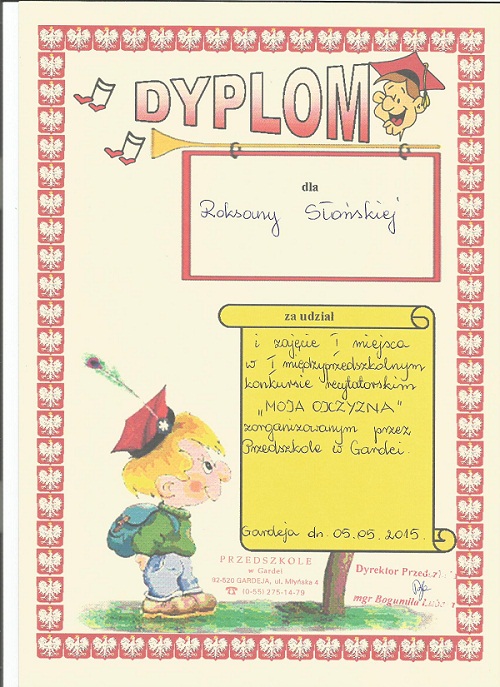 DYPLOM
dla
Roksany Słońskiej
za udział
i zajęcie I miejsca
w I międzyprzedszkolnym
konkursie recytatorskim
„MOJA OJCZYZNA"
zorganizowanym przez
Przedszkole w Gardei.
Gardeja dn. 05.05.2015.
PRZEDSZKOLE
w Gardei
82-520 GARDEJA, ul. Młyńska 4
☎ (0-55) 275-14-79
Dyrektor
mgr Bogumiła